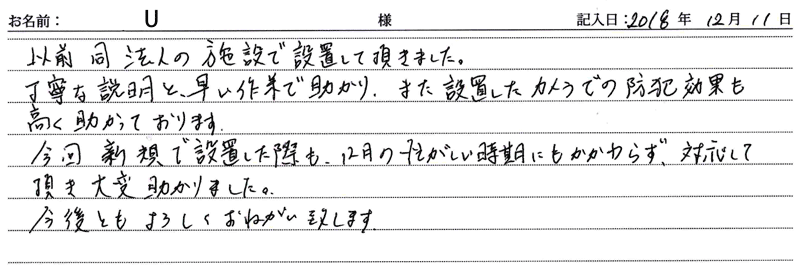 お名前： U 様 記入日：2018年 12月 11日
以前 同 法人の 施設で 設置して頂きました。
丁寧な 説明と、早い作業で助かり、また 設置した カメラでの 防犯効果も
高く 助かっております。
今回 新規で設置した際も、12月の 忙がしい時期にもかかわらず、対応して
頂き 大変 助かりました。
今後とも よろしく おねがい 致します。